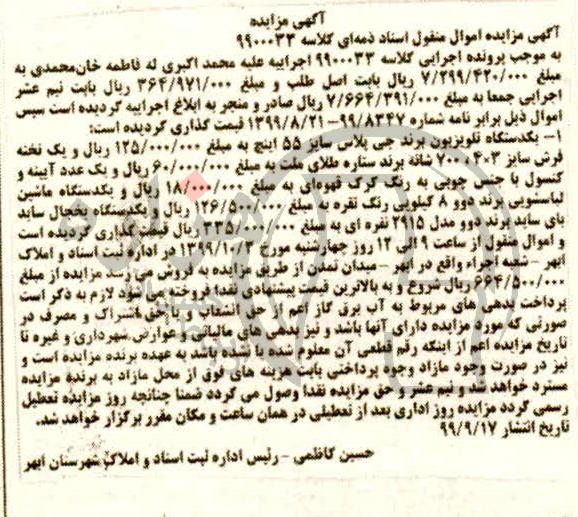 آگهی مزایده
آگهی مزایده اموال منقول اسناد ذمه‌ای کلاسه ۹۹۰۰۰۳۳
به موجب پرونده اجرایی کلاسه ۹۹۰۰۰۳۳ اجراییه علیه محمد اکبری له فاطمه خان‌محمدی به
مبلغ ۷/۲۹۹/۴۲۰/۰۰۰ ریال بابت اصل طلب و مبلغ ۳۶۴/۹۷۱/۰۰۰ ریال بابت نیم عشر
اجرایی جمعا به مبلغ ۷/۶۶۴/۳۹۱/۰۰۰ ریال صادر و منجر به ابلاغ اجراییه گردیده است سپس
اموال ذیل برابر نامه شماره ۹۹/۸۳۴۷–۱۳۹۹/۸/۲۱ قیمت گذاری گردیده است:
۱– یکدستگاه تلویزیون برند جی پلاس سایز ۵۵ اینچ به مبلغ ۱۲۵/۰۰۰/۰۰۰ ریال و یک تخته
فرش سایز ۴×۳ ، ۷۰۰ شانه برند ستاره طلای ملت به مبلغ ۶۰/۰۰۰/۰۰۰ ریال و یک عدد آیینه و
کنسول با جنس چوبی به رنگ کرک قهوه‌ای به مبلغ ۱۸/۰۰۰/۰۰۰ ریال و یکدستگاه ماشین
لباسشویی برند دوو ۸ کیلویی رنگ نقره به مبلغ ۱۲۶/۵۰۰/۰۰۰ ریال و یکدستگاه یخچال ساید
بای ساید برند دوو مدل ۲۹۱۵ نقره ای به مبلغ ۳۳۵/۰۰۰/۰۰۰ ریال قیمت گذاری گردیده است
و اموال منقول از ساعت ۹ الی ۱۲ روز چهارشنبه مورخ ۱۳۹۹/۱۰/۳ در اداره ثبت اسناد و املاک
ابهر –شعبه اجراء واقع در ابهر –میدان تمدن از طریق مزایده به فروش می رسد مزایده از مبلغ
۶۶۴/۵۰۰/۰۰۰ ریال شروع و به بالاترین قیمت پیشنهادی نقدا فروخته می شود لازم به ذکر است
پرداخت بدهی های مربوط به آب برق گاز اعم از حق انشعاب و یا حق اشتراک و مصرف در
صورتی که مورد مزایده دارای آنها باشد و نیز بدهی های مالیاتی و عوارض شهرداری و غیره تا
تاریخ مزایده اعم از اینکه رقم قطعی آن معلوم شده یا نشده باشد به عهده برنده مزایده است و
نیز در صورت وجود مازاد وجوه پرداختی بابت هزینه های فوق از محل مازاد به برنده مزایده
مسترد خواهد شد و نیم عشر و حق مزایده نقدا وصول می گردد ضمنا چنانچه روز مزایده تعطیل
رسمی گردد مزایده روز اداری بعد از تعطیلی در همان ساعت و مکان مقرر برگزار خواهد شد.
تاریخ انتشار ۹۹/۹/۱۷
حسین کاظمی –رئیس اداره ثبت اسناد و املاک شهرستان ابهر